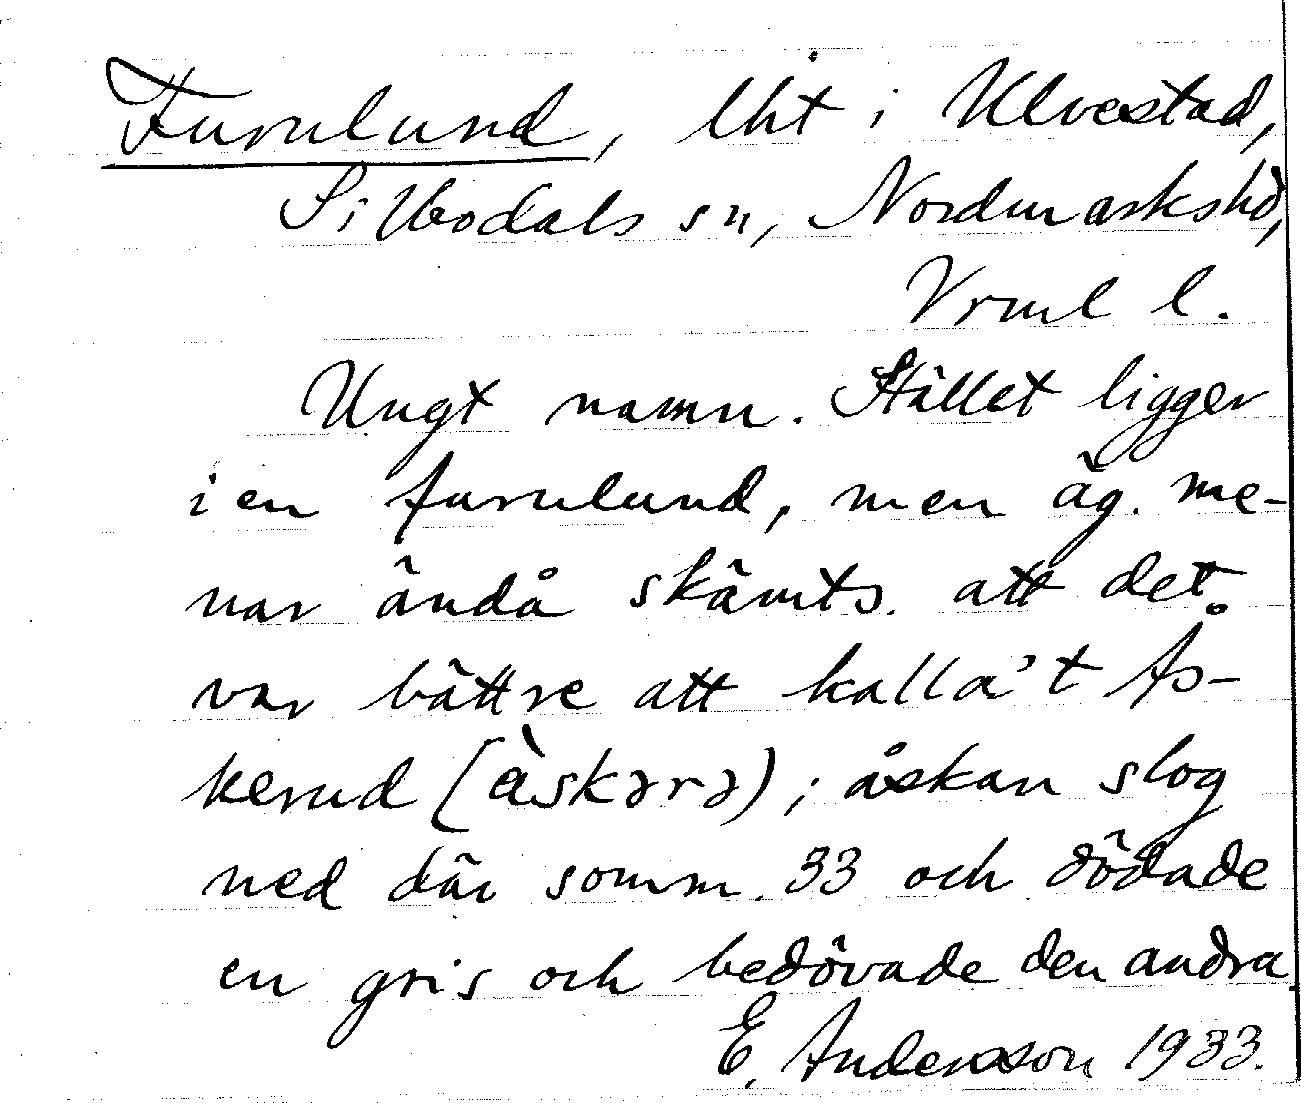 Furulund, lht i Ulvestad,
Silbodals sn, Nordmarkshd,
Vrml l.
Ungt namn. Stället ligger
i en furulund, men äg. me-
nar ändå skämts. att det
var bättre att kalla't Ås-
kerud (àskərə); åskan slog
ned där somm. 33 och dödade
en gris och bedövade den andra
E. Andersson 1933.